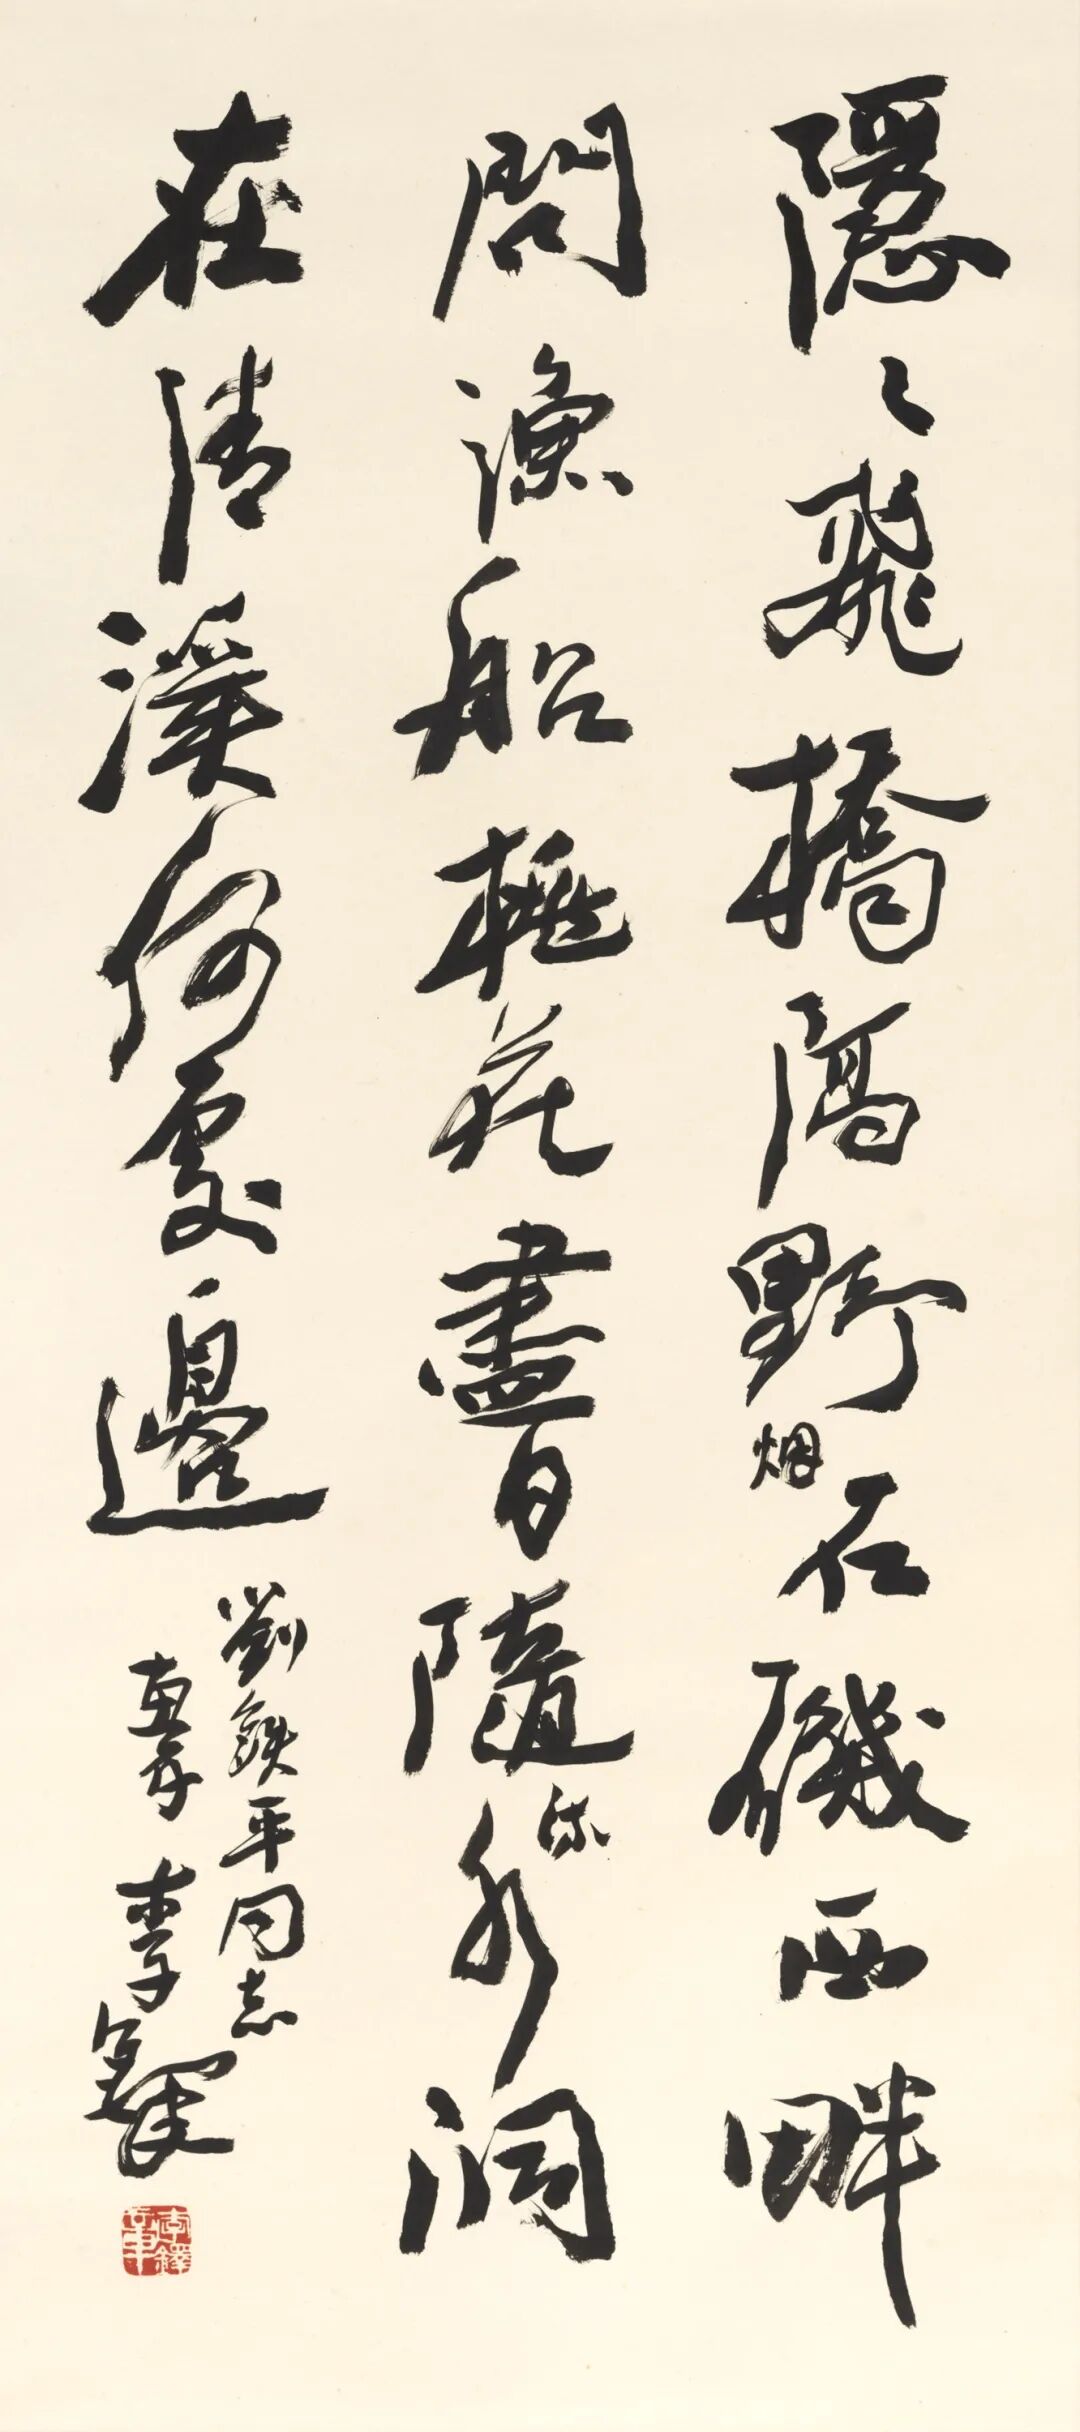 隱々飛橋隔野烟石磯西畔
問漁船桃花盡日隨流水洞
在清溪何處邊
劉鉄平同志
惠存 李鐸